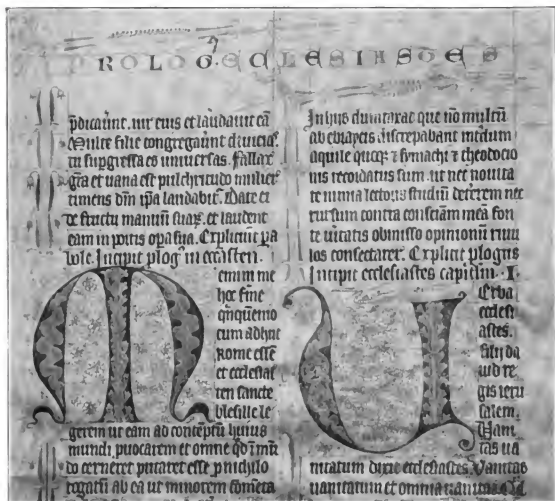 PROLOG. ECCLESIASTES
p̄dicauūt. uir eius et laudauit eā
Multe filie congregauūt diuicias.
tu supgressa es uniuersas. fallax
gr̄a et uana est pulchritudo mulier
timens dn̄m ip̄a laudabit᷑. Date ei
de fructu manuū suaꝝ. et laudent
eam in portis opa sua. Explicuit pa
bole. Incipit ploḡ in eccl̄asten.
Memini me
hoc ferme
q̄nquēnio
cum adhuc
Rome essē
et ecclesias
ten sancte
blesille le
gerem ut eam ad contēptū huius
mundi puocarem et omne qd̄ ī mū
do cerneret putaret esse p nichilo
rogatū ab ea ut
In hijs dumtaxat que nō multū
ab ebraycis discrepabant interdum
aquile quoqꝫ ⁊ symachi ⁊ theodocio
nis recordatus sum. ut nec nouita
te nimia lectoris studiū deterrem nec
rursum contra consciam meā fon
te ueritatis obmisso opinionū riuu
los consectarer. Explicit plogus
Incipit ecclesiastes capitlm. I.
Uerba
ecclesi
astes.
filij da
uid re
gis ieru
salem.
Uani
tas ua
nitatum dixit ecclesiastes Uanitas
uanitatum et omnia uanitas